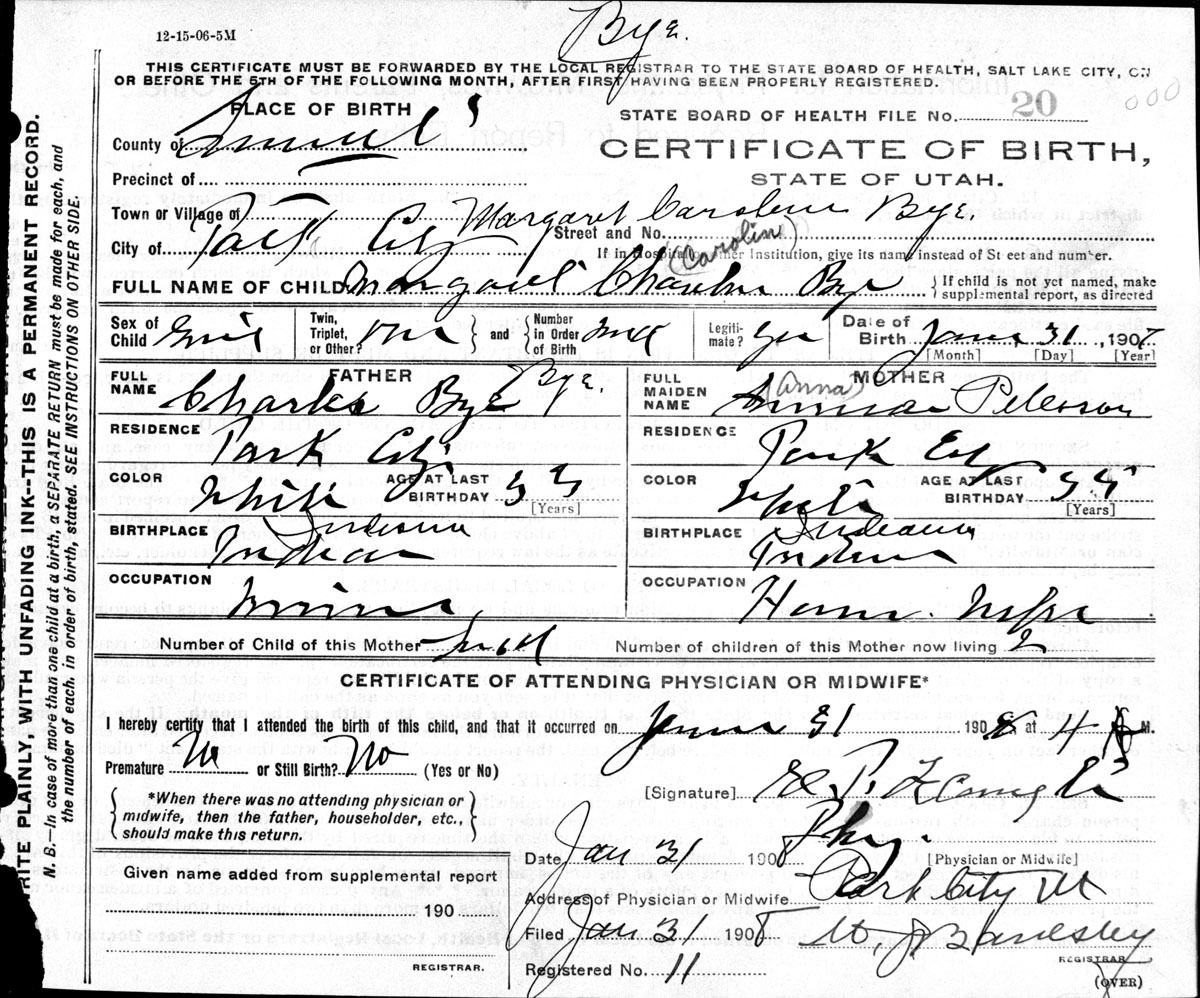 12-15-06-5M
Bye.
THIS CERTIFICATE MUST BE FORWARDED BY THE LOCAL REGISTRAR TO THE STATE BOARD OF HEALTH, SALT LAKE CITY, ON
OR BEFORE THE 5TH OF THE FOLLOWING MONTH, AFTER FIRST HAVING BEEN PROPERLY REGISTERED.
PLACE OF BIRTH
STATE BOARD OF HEALTH FILE No. 20
000
County of Summit
CERTIFICATE OF BIRTH,
STATE OF UTAH.
Precinct of
Town or Village of
Margaret Caroline Bye
Street and No.
City of Park City
(Carolin)
If in Hospital or other Institution, give its name instead of Street and number.
FULL NAME OF CHILD Margaret Bye
If child is not yet named, make supplemental report, as directed
Sex of Child Girl
Twin, Triplet, or Other? One and Number in Order of Birth
Legitimate? Yes
Date of Birth 31, 1908
[Month] [Day] [Year]
FATHER
FULL NAME Charles Bye Bye.
RESIDENCE Park City
COLOR White
AGE AT LAST BIRTHDAY 33
[Years]
BIRTHPLACE Indiana
Indiana
OCCUPATION
MOTHER
FULL MAIDEN NAME (Anna) Peterson
RESIDENCE Park City
COLOR White
AGE AT LAST BIRTHDAY
[Years]
BIRTHPLACE Indiana
Indiana
OCCUPATION House Wife
Number of Child of this Mother
Number of children of this Mother now living 2
CERTIFICATE OF ATTENDING PHYSICIAN OR MIDWIFE*
I hereby certify that I attended the birth of this child, and that it occurred on 31 1908 at 4 M.
Premature No or Still Birth? No (Yes or No)
[Signature]
*When there was no attending physician or midwife, then the father, householder, etc., should make this return.
Phy.
Date Jan 31 1908
[Physician or Midwife]
Given name added from supplemental report
190
REGISTRAR.
Address of Physician or Midwife Park City Ut
Filed Jan 31 1908
REGISTRAR
Registered No. 11
(OVER)
WRITE PLAINLY WITH UNFADING INK—THIS IS A PERMANENT RECORD.
N. B.—In case of more than one child at a birth, a SEPARATE RETURN must be made for each, and
the number of each, in order of birth, stated. SEE INSTRUCTIONS ON OTHER SIDE.